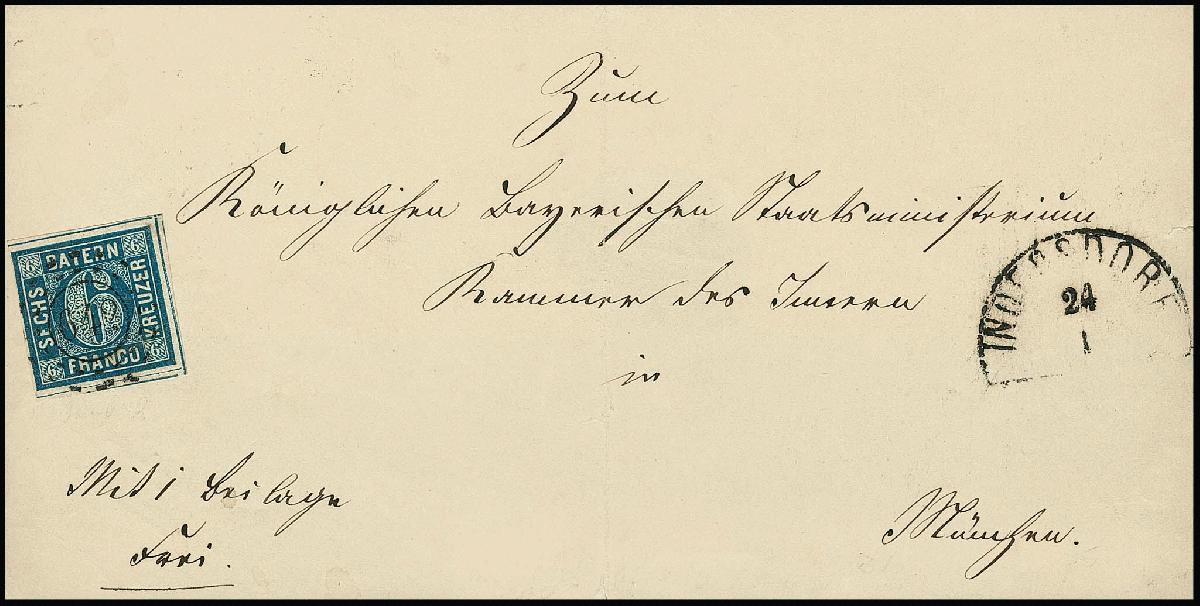 Zum
Königlichen Bayerischen Staatsministerium
Kammer des Innern
in
München.
Mit 1 Beilage
Frei.
BAYERN
SECHS
KREUZER
FRANCO
6
6
6
6
6
INDERSDORF
24
1